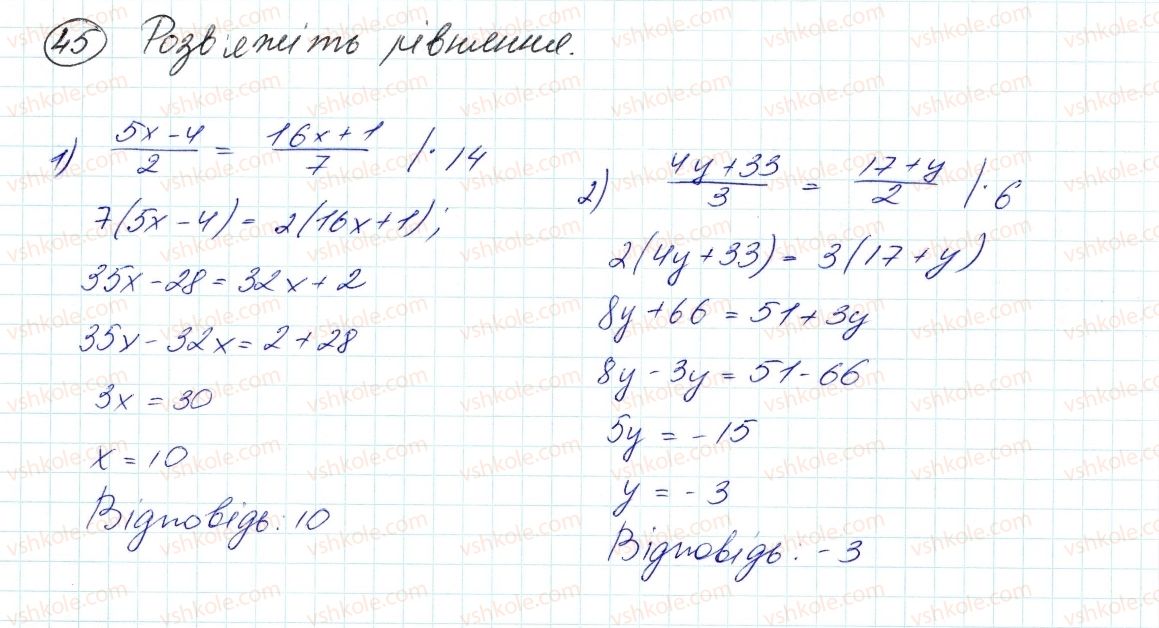 45 Розв'яжіть рівняння.
1) (5x-4)/2 = (16x+1)/7 /· 14
7(5x-4) = 2(16x+1);
35x-28=32x+2
35x-32x=2+28
3x = 30
x = 10
Відповідь: 10
2) (4y+33)/3 = (17+y)/2 /· 6
2(4y+33) = 3(17+y)
8y+66 = 51+3y
8y-3y = 51-66
5y = -15
y = -3
Відповідь: -3
vshkole.com